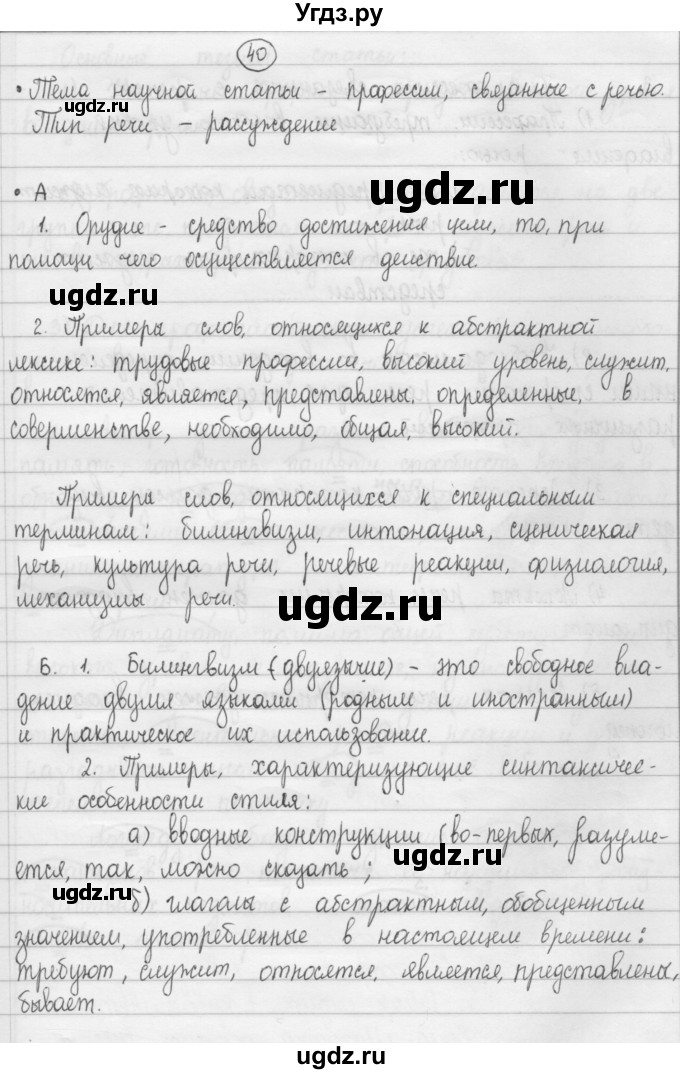 Угдз.ру
40
• Тема научной статьи – профессии, связанные с речью.
Тип речи – рассуждение
ugdz.ru
ugdz.ru
• А
1. Орудие – средство достижения цели, то, при
помощи чего осуществляется действие.
ugdz.ru
2. Примеры слов, относящихся к абстрактной
лексике: трудовые профессии, высокий уровень, служит,
относятся, является, представлены, определенные, в
совершенстве, необходимо, общая, высокий.
ugdz.ru
Примеры слов, относящихся к специальным
терминам: билингвизм, интонация, сценическая
речь, культура речи, речевые реакции, физиология,
механизмы речи.
ugdz.ru
Б. 1. Билингвизм (двуязычие) – это свободное вла-
дение двумя языками (родным и иностранным)
и практическое их использование.
2. Примеры, характеризующие синтаксичес-
кие особенности стиля:
а) вводные конструкции (во-первых, разуме-
ется, так, можно сказать;
ugdz.ru
ugdz.ru
б) глаголы с абстрактным, обобщенным
значением, употребленные в настоящем времени:
требуют, служит, относятся, является, представлены,
бывает.
ugdz.ru